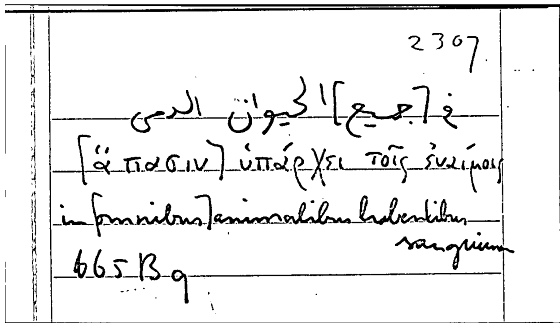 2307
في [جميع] الحيوان الدمى
[ἅπασιν] ὑπάρχει τοῖς ἐναίμοις
in [omnibus] animalibus habentibus
sanguinem
665 B 9